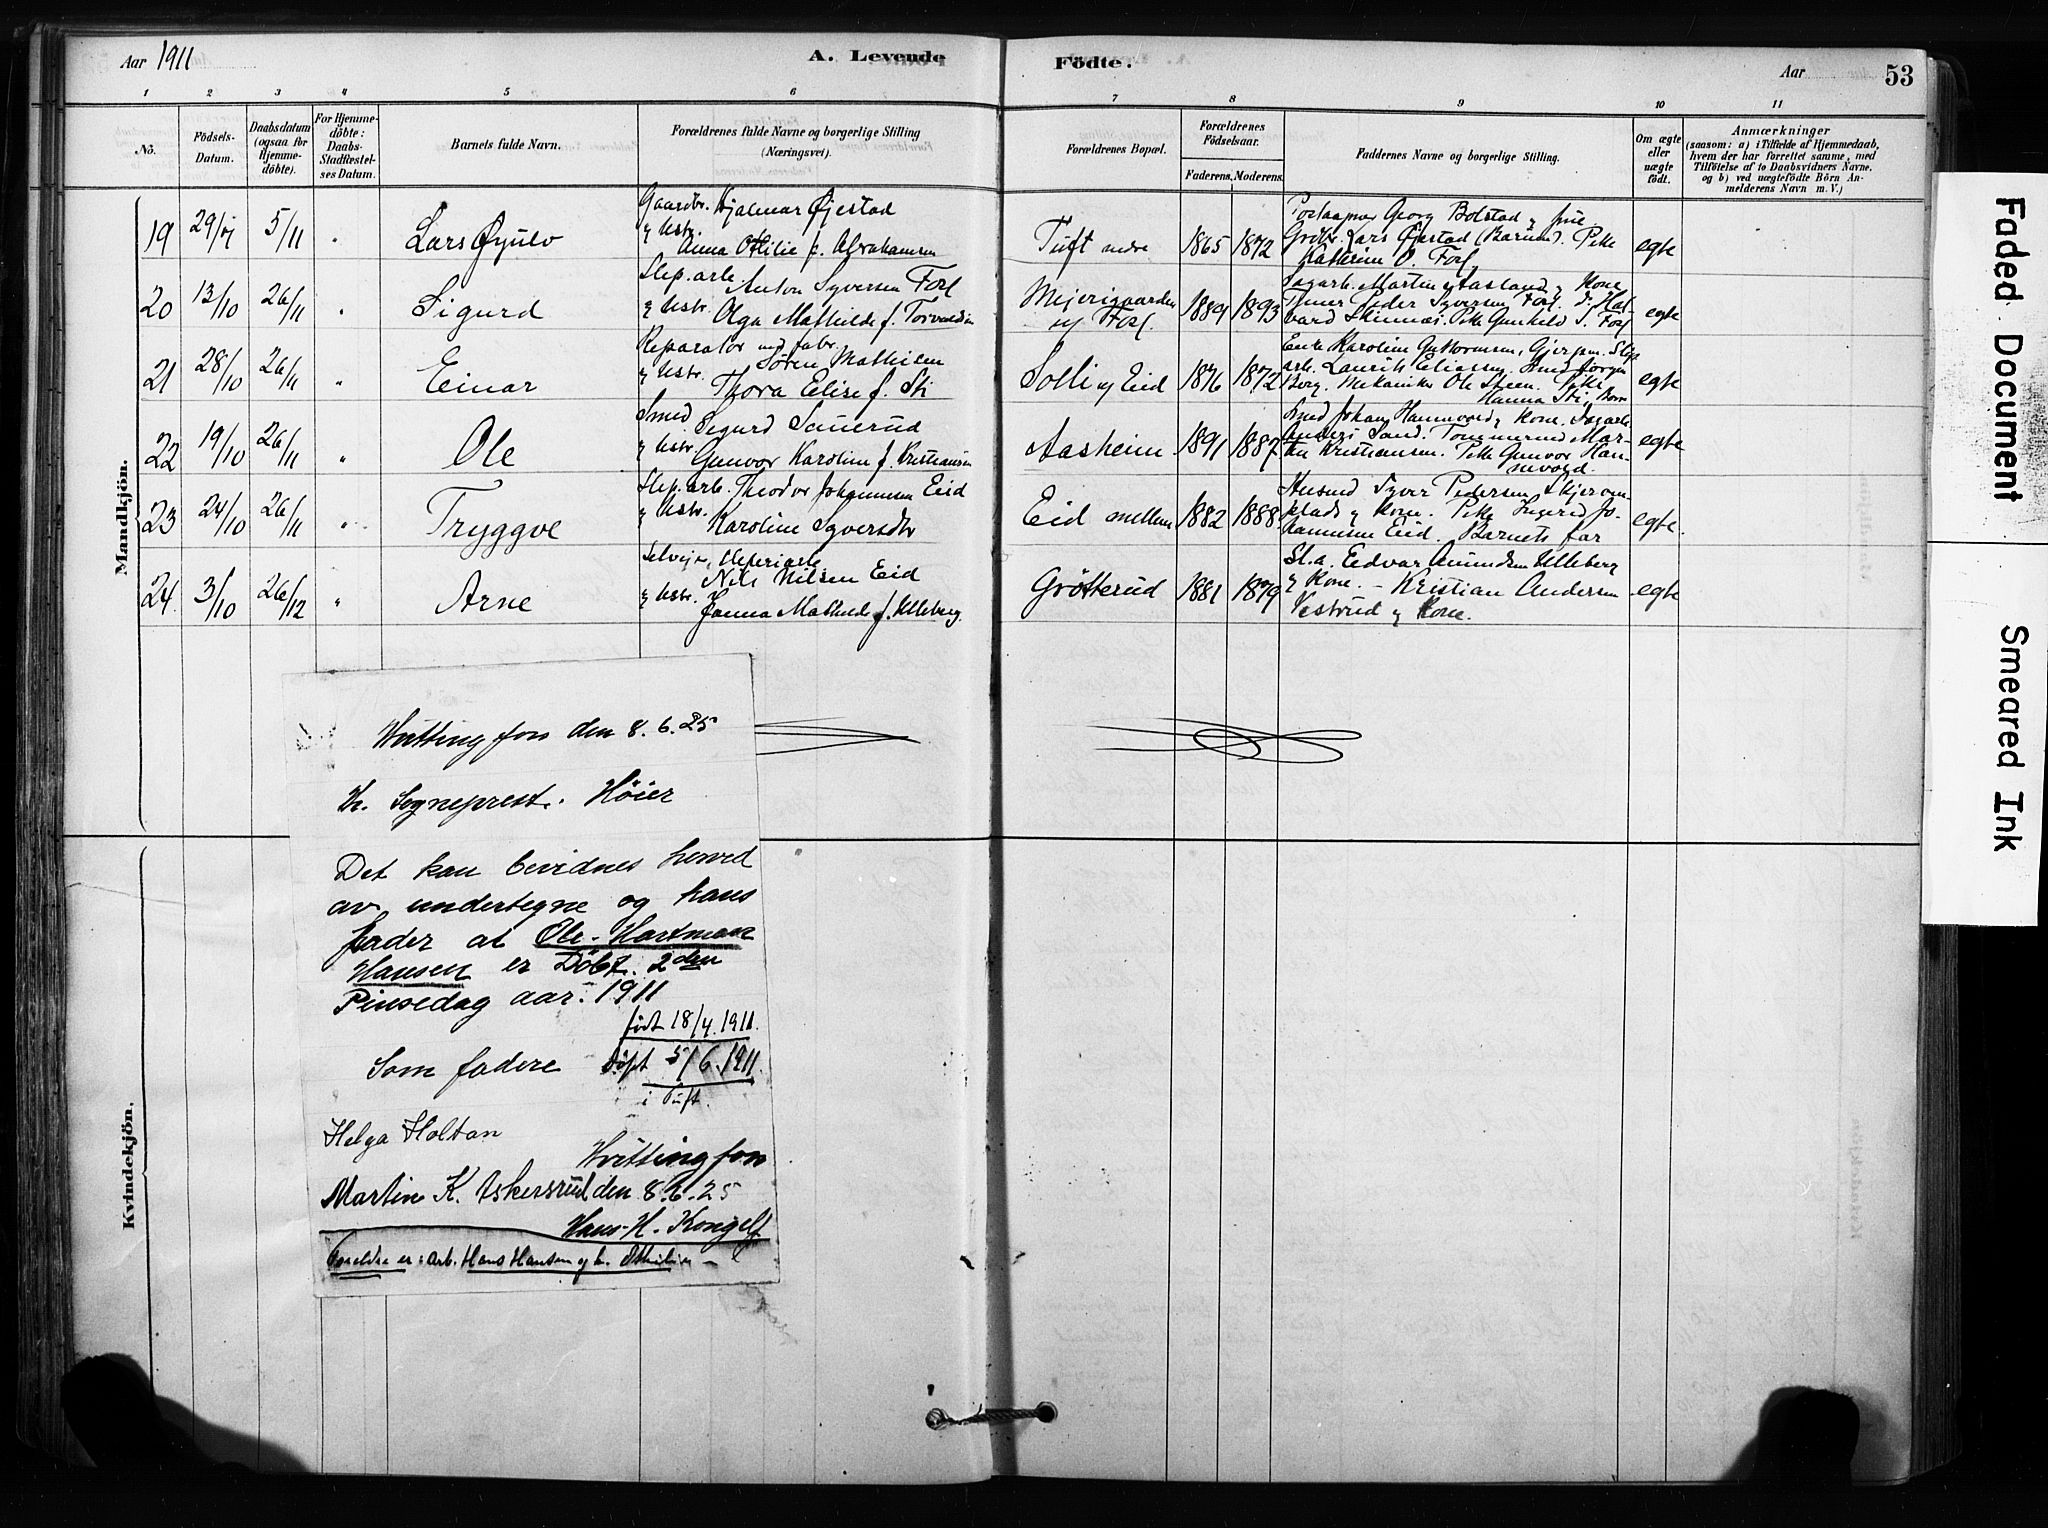 Aar 1911
A. Levende
Födte.
Aar
53
1 2 3 4 5 6 7 8 9 10 11
No.
Födsels-
Datum.
Daabsdatum
(ogsaa for
Hjemme-
döbte).
For Hjemme-
döbte:
Daabs-
Stadfæstel-
ses Datum.
Barnets fulde Navn.
Forældrenes fulde Navne og borgerlige Stilling
(Næringsvei).
Forældrenes Bopæl.
Forældrenes
Födselsaar.
Faderens. Moderens.
Faddernes Navne og borgerlige Stilling.
Om ægte
eller
uægte
födt.
Anmærkninger
(saasom: a) i Tilfælde af Hjemmedaab,
hvem der har forrettet samme, med
Tilföielse af to Daabsvidners Navne,
og b) ved uægtefödte Börn An-
melderens Navn m. V.)
Mandkjön.
19 29/7 5/11 " Lars Øyulv
Gaardbr. Hjalmar Øjestad
y Hstr.
Anna Otilie f. Abrahamsen
Tuft nedre 1865 1872
Georg Bolstad y frue
Lars Øjestad (Bærum). Pike
O. Fosf
egte
20 13/10 26/11 " Sigurd
Slip.arb. Anton Syversen Foss
y Hstr. Olga Mathilde f. Torvaldsen
Mejerigaarden
y Foss. 1889 1893
Sagarb. Martin Aasland y Kone
Peder Syversen Foss.
Pike Gunhild S. Foss
egte
21 28/10 26/11 " Einar
Reparatør ved fabr.
Søren Mathisen
y Hstr. Thora Elise f. Sti
Solli y Eid 1876 1872
Enke Karoline Guttormsen, Gjerpen. Slip
arb. Laurits Eliassen, Smed Jørgen
Berg. Mekaniker Ole Steen. Pike
Hanna Sti, Berg
egte
22 19/10 26/11 " Ole
Smed Sigurd Sauerud
y Hstr. Gunvor Karoline f. Kristiansen
Aasheim 1891 1887
Smed Johan Hamnvold y Kone. Sagarb.
Anders Sand. Tømmermd Mar-
tin Kristiansen. Pike Gunvor Ham-
nvold.
egte
23 24/10 26/11 " Tryggve
Slip.arb. Theodor Johannesen Eid
y Hstr. Karoline Syversdtr
Eid mellem 1882 1888.
Husmd Syver Pedersen Skjerom-
plads y Kone. Pike Ingerid Jo-
hannesen Eid. Barnets far
egte.
24. 3/10 26/12 " Arne
Selveier,
Nils Nilsen Eid
y Hstr. Janna Mathild f. Ulleberg.
Grøtterud 1881 1879
Sl.a. Edvar Amundsen Ulleberg
y Kone. - Kristian Andersen
Vestrud y Kone.
egte
Kvindekjön.
Hvittingfoss den 8.6.25
Hr. Sogneprest. Höier
Det kan bevidnes herved
av undertegne og hans
fader at Ole-Hartman
Hansen er Döbt. 2den
Pinsedag aar. 1911
født 18/4. 1911.
Som fadere Døpt 5/6. 1911.
i Tuft.
Helga Holtan
Hvittingfoss
Martin K. Askersrud den 8.6.25
Hans-H. Kongelf
Foreldre er: arb. Hans Hansen og h. Othilie -
Faded Document
Smeared Ink